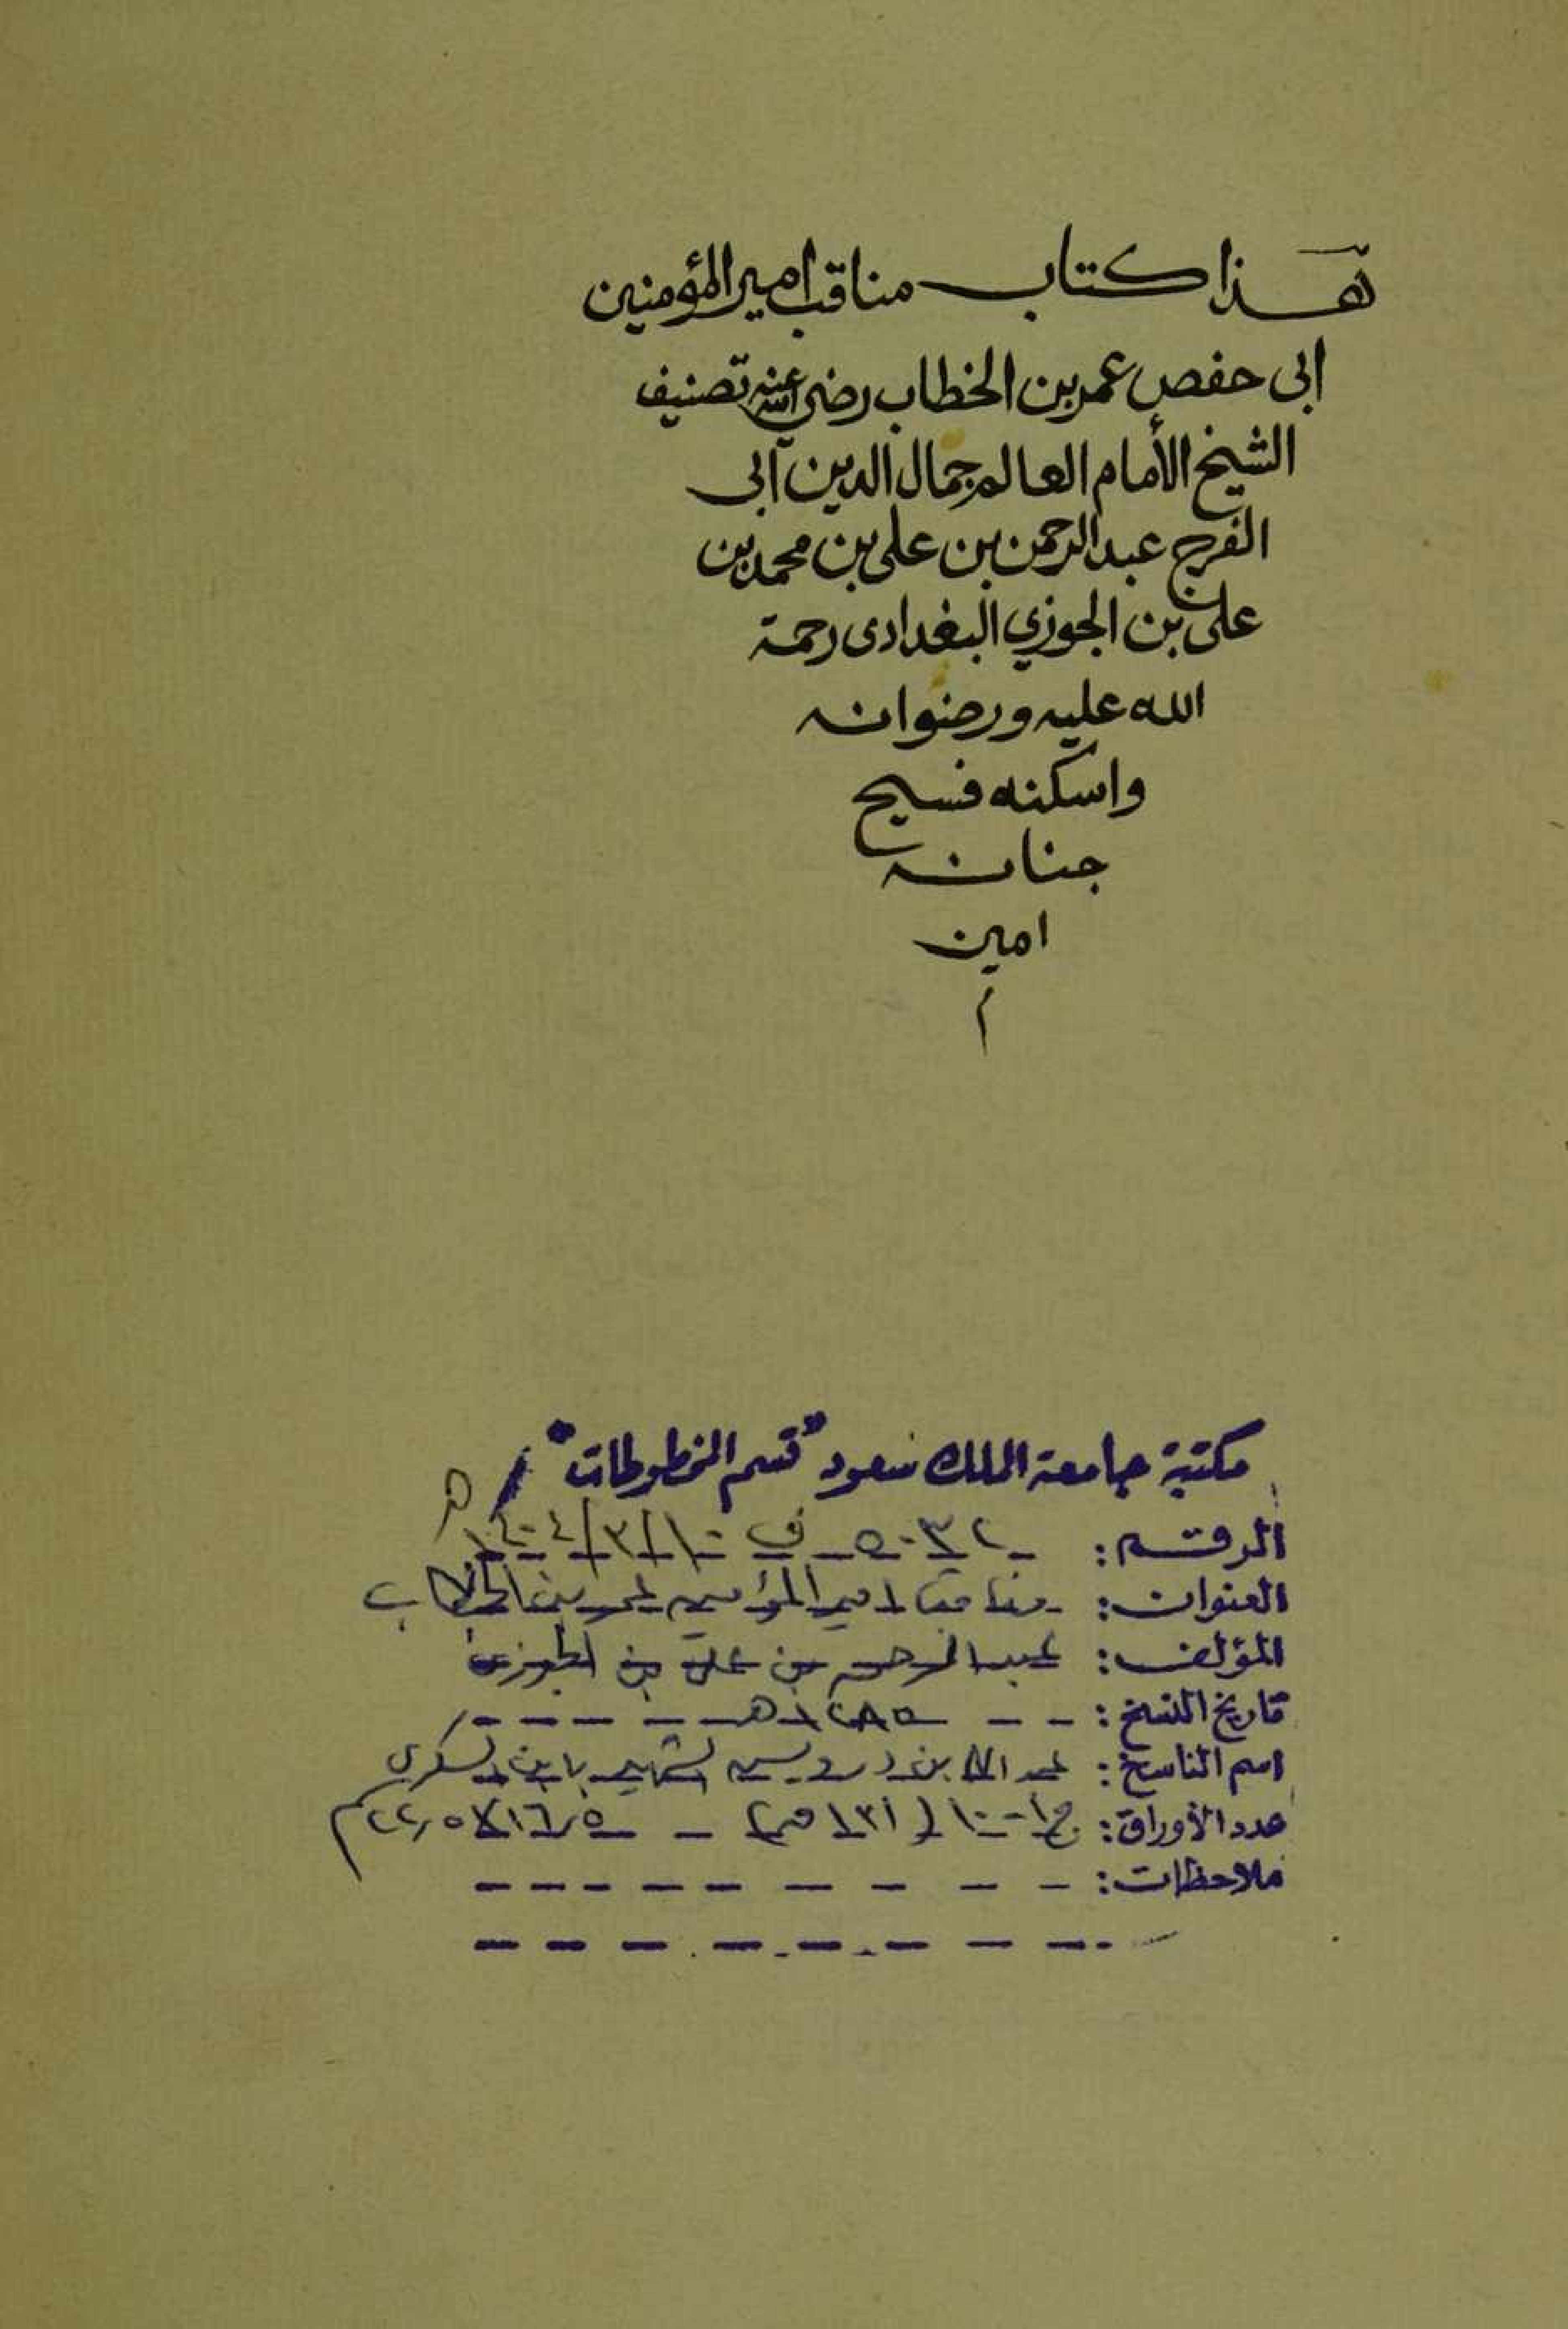 هذا كتاب مناقب امير المؤمنين
ابى حفص عمر بن الخطاب رضي الله عنه تصنيف
الشيخ الأمام العالم جمال الدين ابى
الفرج عبد الرحمن بن على بن محمد بن
على بن الجوزي البغدادى رحمة
الله عليه ورضوانه
واسكنه فسيح
جنانه
امين
م
مكتبة جامعة الملك سعود "قسم المخطوطات"
الرقم: ٥٠٣٢ ف ١٤٠٤/٣/١٠ هـ
العنوان: مناقب امير المؤمنين عمر بن الخطاب
المؤلف: عبد الرحمن بن علي بن الجوزي
تاريخ النسخ: ١٢٨٥ هـ
اسم الناسخ: عبد الله بن درويش الشهير بابن السكري
عدد الأوراق: ج١ - ١ ( ١٣١ ص ) - ٢٢٫٥×١٦٫٥ م
ملاحظات: